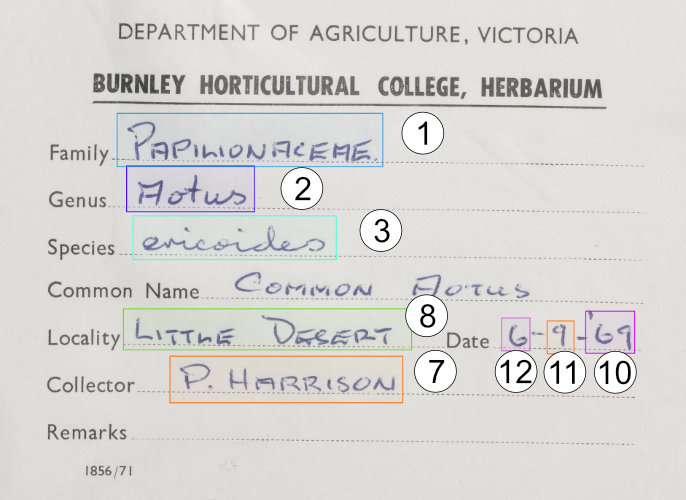 DEPARTMENT OF AGRICULTURE, VICTORIA
BURNLEY HORTICULTURAL COLLEGE, HERBARIUM
Family PAPILIONACEAE. 1
Genus Aotus 2
Species ericoides 3
Common Name COMMON AOTUS
Locality LITTLE DESERT 8 Date 6-9-'69
Collector P. HARRISON 7 12 11 10
Remarks
1856/71